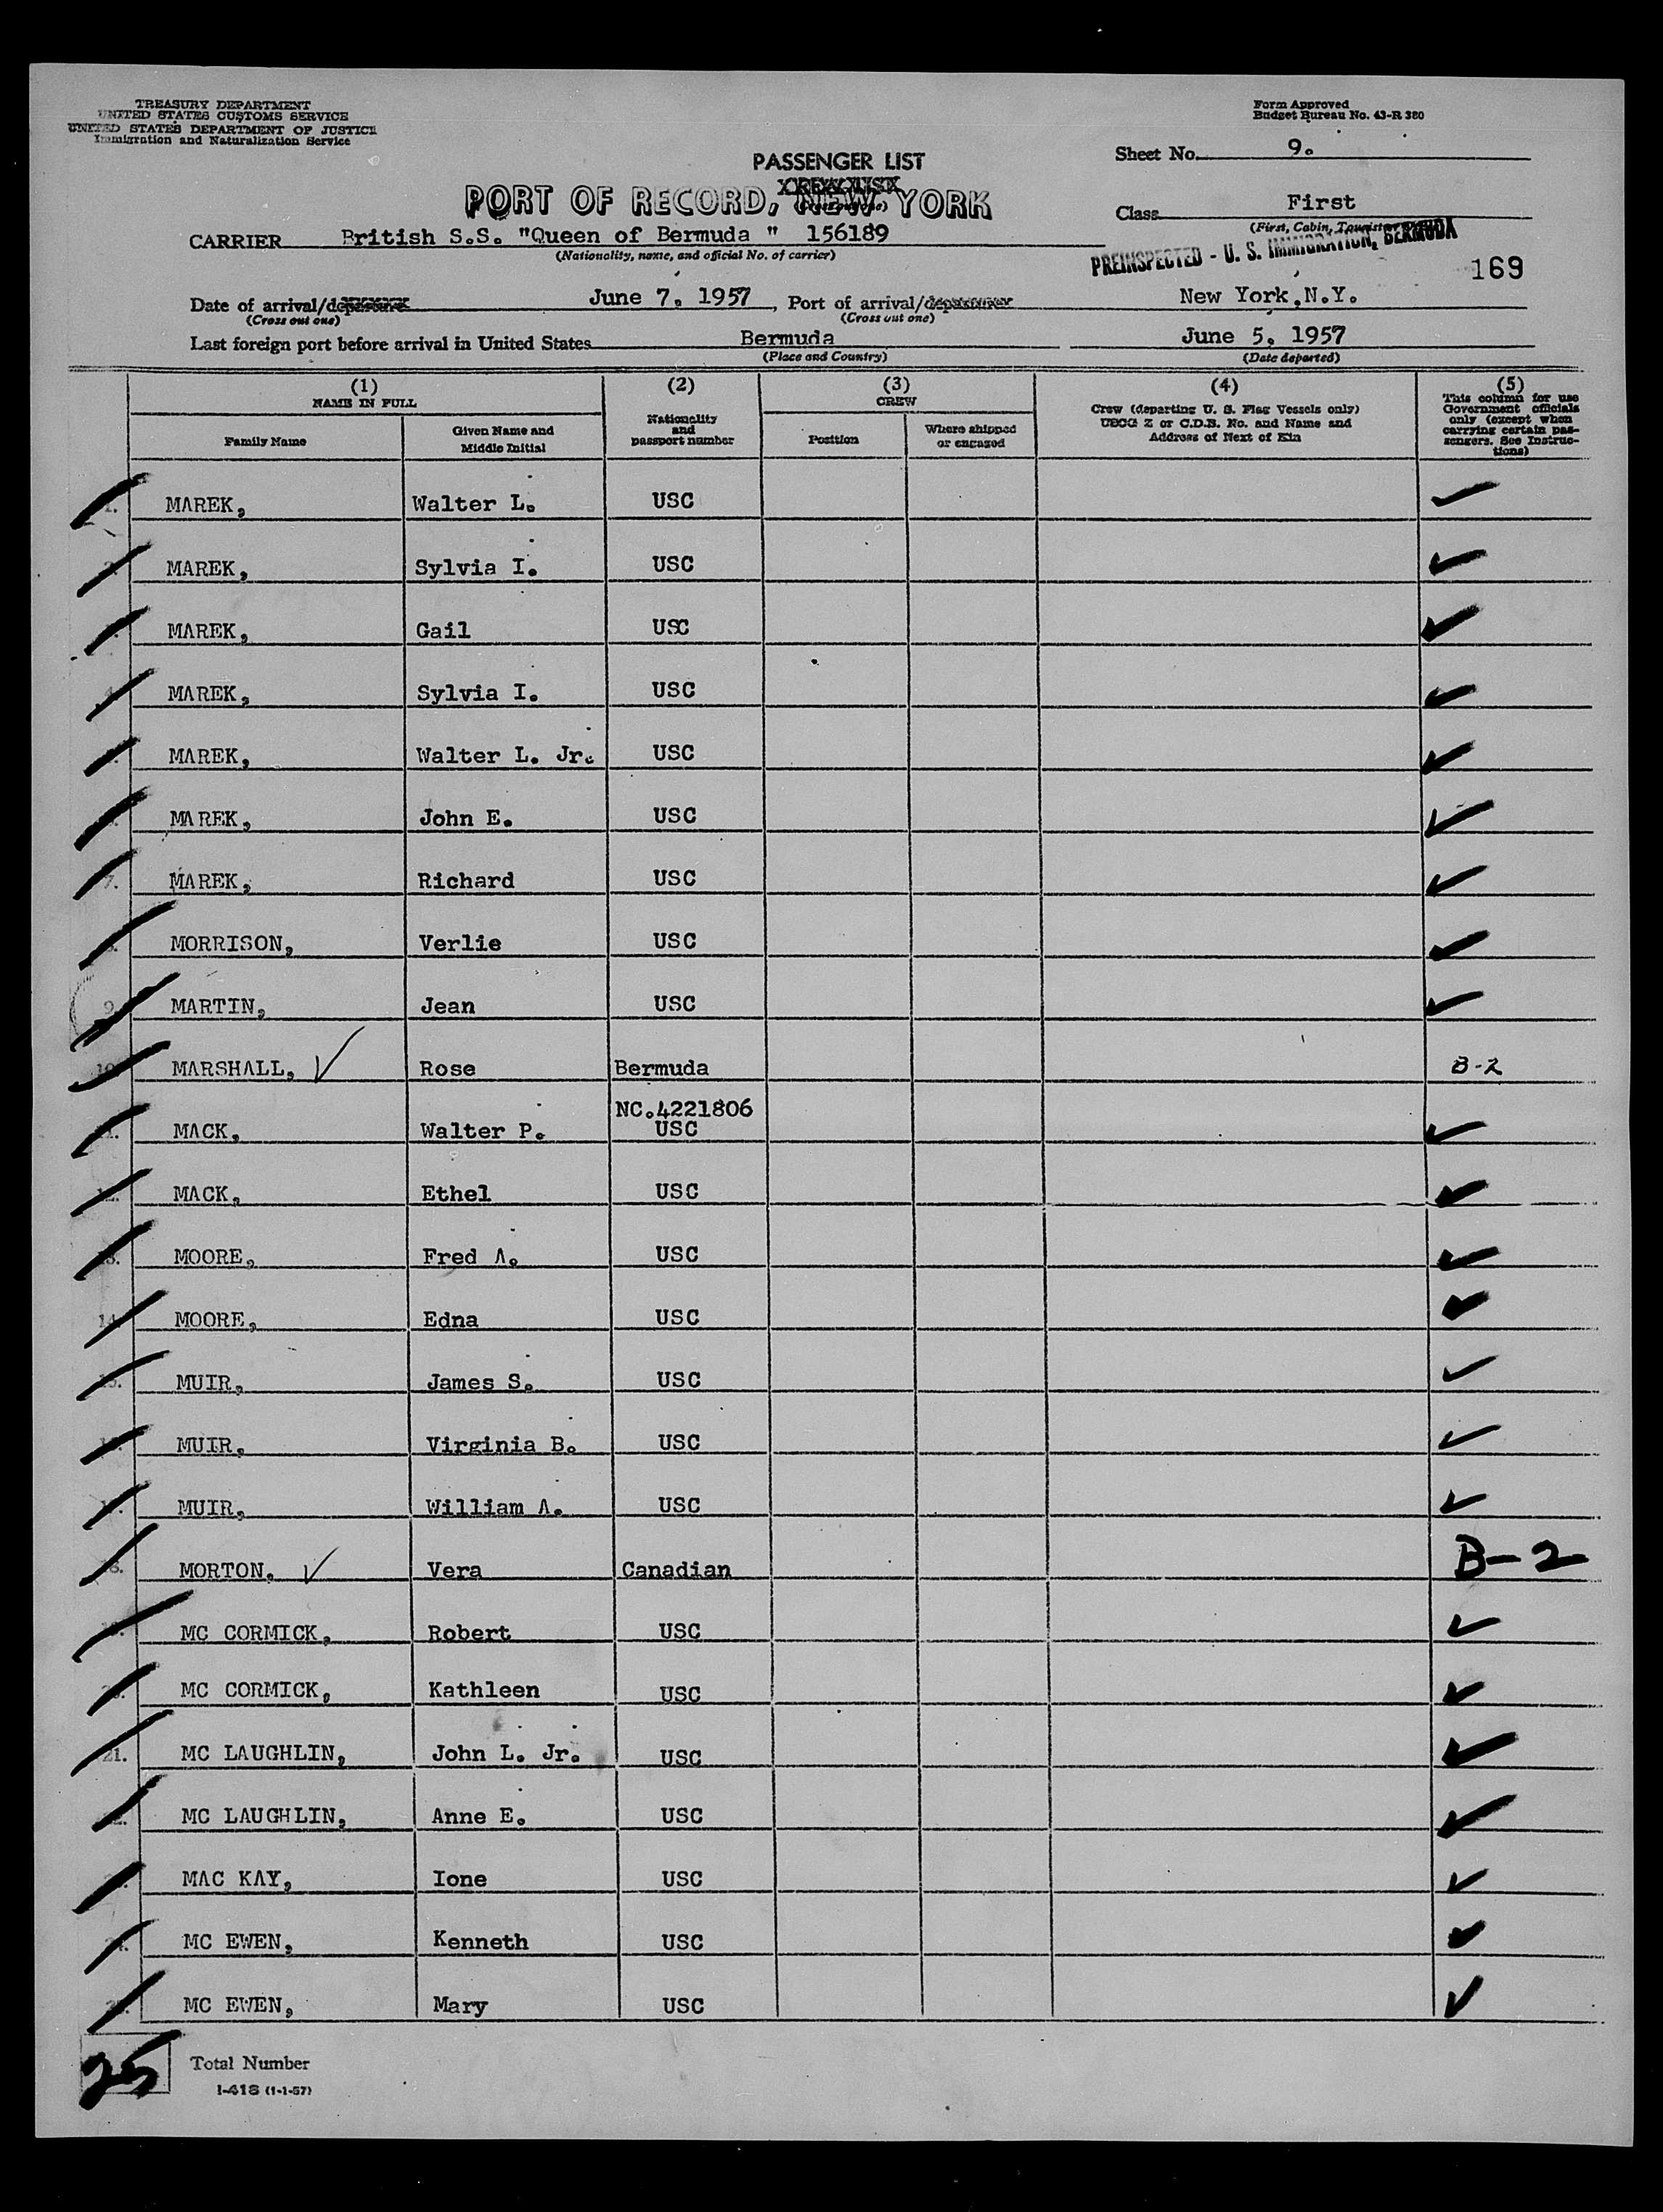 TREASURY DEPARTMENT
UNITED STATES CUSTOMS SERVICE
UNITED STATES DEPARTMENT OF JUSTICE
Immigration and Naturalization Service
Form Approved
Budget Bureau No. 43-R 380
Sheet No. 9.
PASSENGER LIST
CREW LIST
PORT OF RECORD, NEW YORK
(Cross out one)
Class First
(First, Cabin, Tourist
CARRIER British S.S. "Queen of Bermuda " 156189
(Nationality, name, and official No. of carrier)
PREINSPECTED - U. S. IMMIGRATION, BERMUDA
169
Date of arrival/departure June 7, 1957, Port of arrival/departure New York, N.Y.
(Cross out one) (Cross out one)
Last foreign port before arrival in United States Bermuda June 5, 1957
(Place and Country) (Date departed)
(1) (2) (3) (4) (5)
NAME IN FULL
Family Name
Given Name and Middle Initial
Nationality and passport number
CREW
Position
Where shipped or engaged
Crew (departing U. S. Flag Vessels only)
USCG Z or C.D.B. No. and Name and
Address of Next of Kin
This column for use
Government officials
only (except when
carrying certain pas-
sengers. See Instruc-
tions)
1. MAREK, Walter L. USC
MAREK, Sylvia I. USC
MAREK, Gail USC
4. MAREK, Sylvia I. USC
MAREK, Walter L. Jr. USC
MAREK, John E. USC
7. MAREK, Richard USC
MORRISON, Verlie USC
9. MARTIN, Jean USC
10. MARSHALL, Rose Bermuda B-2
NC.4221806
11. MACK, Walter P. USC
12. MACK, Ethel USC
13. MOORE, Fred A. USC
14. MOORE, Edna USC
15. MUIR, James S. USC
MUIR, Virginia B. USC
MUIR, William A. USC
18. MORTON, Vera Canadian B-2
MC CORMICK, Robert USC
MC CORMICK, Kathleen USC
21. MC LAUGHLIN, John L. Jr. USC
MC LAUGHLIN, Anne E. USC
MAC KAY, Ione USC
24. MC EWEN, Kenneth USC
MC EWEN, Mary USC
25 Total Number
I-418 (1-1-57)